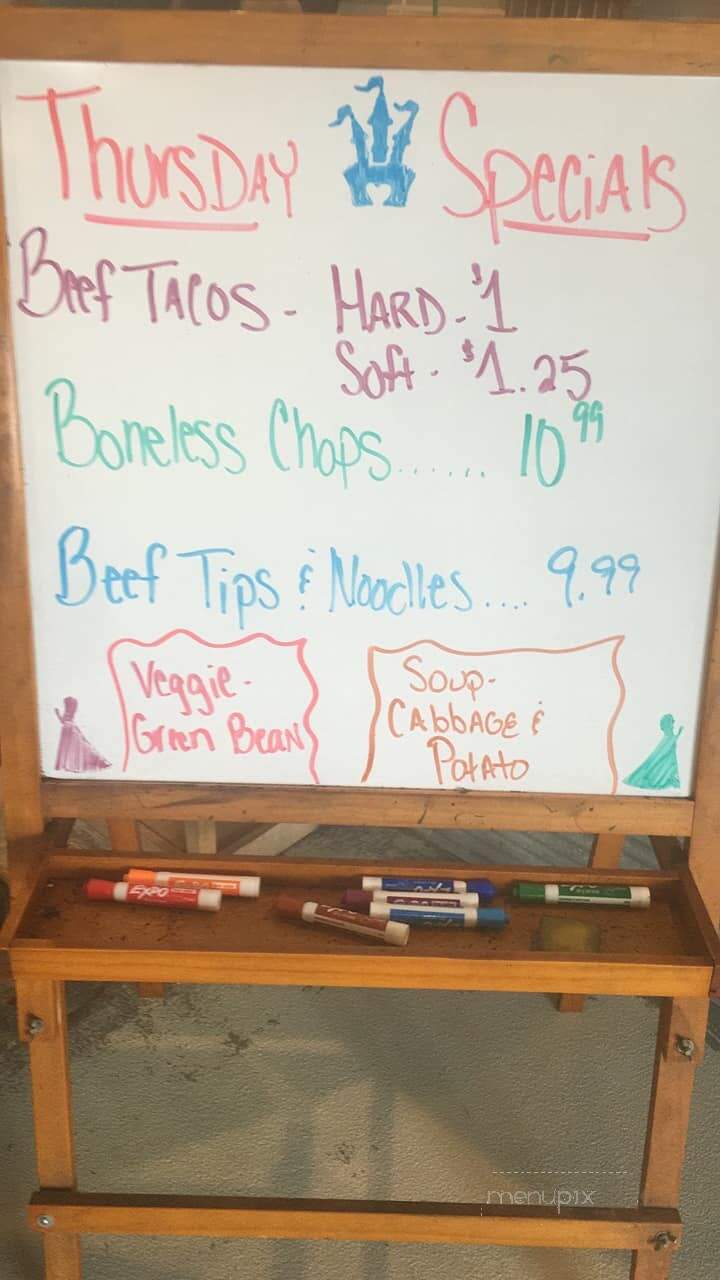 Thursday Specials
Beef Tacos - Hard - $1
Soft - $1.25
Boneless Chops...... 10 99
Beef Tips & Noodles.... 9.99
Veggie -
Green Bean
Soup -
Cabbage &
Potato
EXPO
menupix